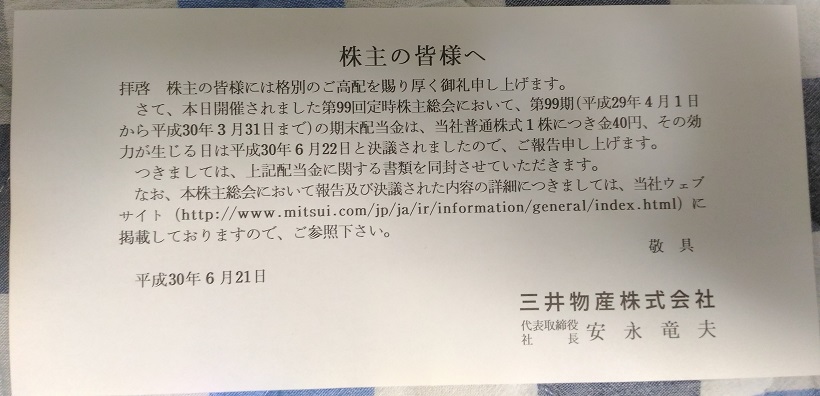 株主の皆様へ
拝啓　株主の皆様には格別のご高配を賜り厚く御礼申し上げます。
さて、本日開催されました第99回定時株主総会において、第99期(平成29年４月１日
から平成30年３月31日まで)の期末配当金は、当社普通株式１株につき金40円、その効
力が生じる日は平成30年６月22日と決議されましたので、ご報告申し上げます。
つきましては、上記配当金に関する書類を同封させていただきます。
なお、本株主総会において報告及び決議された内容の詳細につきましては、当社ウェブ
サイト（http://www.mitsui.com/jp/ja/ir/information/general/index.html）に
掲載しておりますので、ご参照下さい。
敬　具
平成30年６月21日
三井物産株式会社
代表取締役
社　　長　安　永　竜　夫